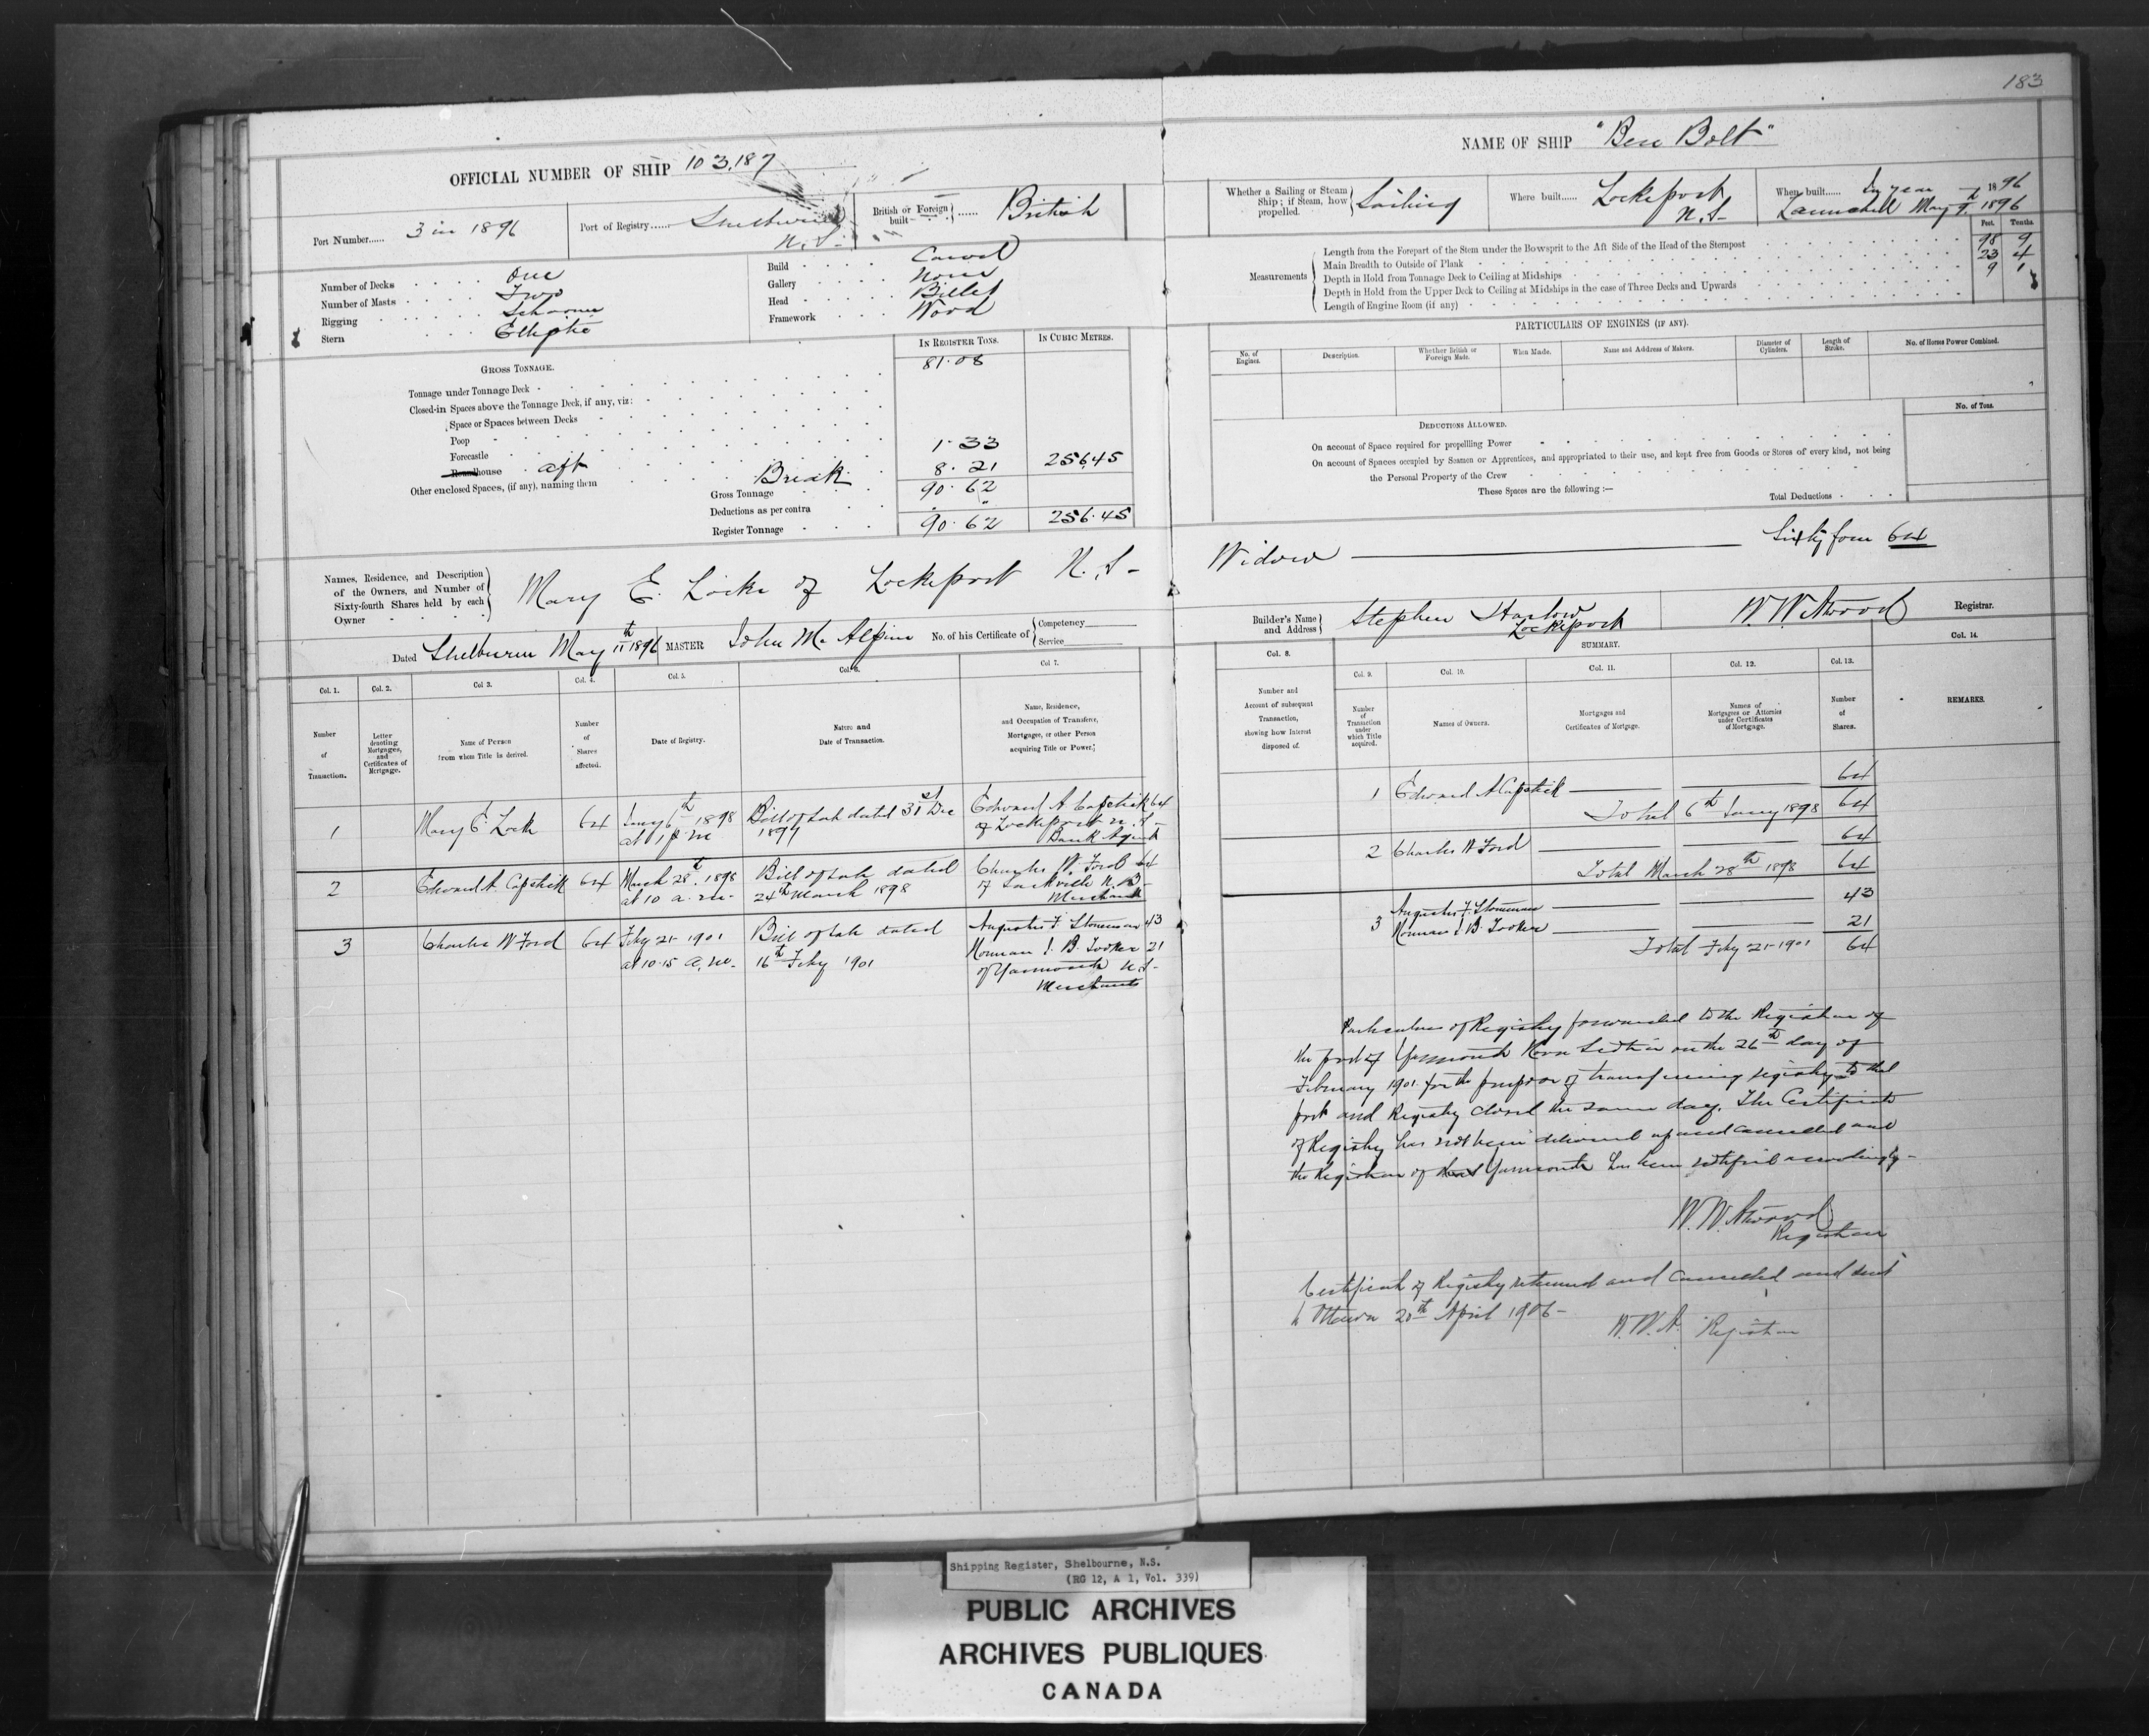 183
OFFICIAL NUMBER OF SHIP 103,187
Port Number...... 3 in 1896
Port of Registry...... Shelburne N.S-
British or Foreign built- ...... British
Number of Decks One
Number of Masts Two
Rigging Schooner
Stern Elliptic
Build Carvel
Gallery None
Head Billet
Framework Wood
GROSS TONNAGE.
IN REGISTER TONS.
IN CUBIC METRES.
Tonnage under Tonnage Deck 81.08
Closed-in Spaces above the Tonnage Deck, if any, viz:
Space or Spaces between Decks
Poop
Forecastle
Roundhouse aft 1.33
Other enclosed Spaces, (if any), naming them Break 8.21 256.45
Gross Tonnage 90.62
Deductions as per contra "
Register Tonnage 90.62 256.45
Names, Residence, and Description
of the Owners, and Number of
Sixty-fourth Shares held by each
Owner
Mary E. Locke of Lockeport N.S-
Dated Shelburne May 11th 1896 MASTER John McAlpine No. of his Certificate of { Competency
Service
Col. 1. Col. 2. Col 3. Col. 4. Col. 5. Col. 6. Col 7.
Number of Transaction.
Letter denoting Mortgages, and Certificates of Mortgage.
Name of Person from whom Title is derived.
Number of Shares affected.
Date of Registry.
Nature and Date of Transaction.
Name, Residence, and Occupation of Transferee, Mortgagee, or other Person acquiring Title or Power.
1 Mary E. Lock 64 Jany 6th 1898 at 1 p.m Bill of sale dated 31st Dec 1897 Edward A Capstick 64 of Lockeport N.S- Bank Agent
2 Edward A. Capstick 64 March 28th. 1898 at 10 a.m- Bill of sale dated 24th March 1898 Charles W. Ford 64 of Sackville N.B- Merchant
3 Charles W Ford 64 Feby 21- 1901 at 10.15 a.m- Bill of sale dated 16th Feby 1901 Augustus F. Stoneman 43 Norman J. B. Tooker 21 of Yarmouth N.S- Merchants
NAME OF SHIP "Ben Bolt"
Whether a Sailing or Steam
Ship; if Steam, how
propelled. Sailing
Where built...... Lockeport N.S-
When built...... In year 1896
Launched May 1896
Feet. Tenths.
Measurements
Length from the Forepart of the Stem under the Bowsprit to the Aft Side of the Head of the Sternpost 98 9
Main Breadth to Outside of Plank 23 4
Depth in Hold from Tonnage Deck to Ceiling at Midships 9 1
Depth in Hold from the Upper Deck to Ceiling at Midships in the case of Three Decks and Upwards
Length of Engine Room (if any)
PARTICULARS OF ENGINES (IF ANY).
No. of Engines. Description. Whether British or Foreign Made. When Made. Name and Address of Makers. Diameter of Cylinders. Length of Stroke. No. of Horses Power Combined.
DEDUCTIONS ALLOWED.
No. of Tons.
On account of Space required for propelling Power
On account of Spaces occupied by Seamen or Apprentices, and appropriated to their use, and kept free from Goods or Stores of every kind, not being
the Personal Property of the Crew
These Spaces are the following:—
Total Deductions
Widow Sixty four 64
Builder's Name and Address Stephen Harlow Lockeport
W W Atwood Registrar.
SUMMARY.
Col. 8. Col. 9. Col. 10. Col. 11. Col. 12. Col. 13. Col. 14.
Number and Account of subsequent Transaction, showing how Interest disposed of.
Number of Transaction under which Title acquired.
Names of Owners.
Mortgages and Certificates of Mortgage.
Names of Mortgagees or Attornies under Certificates of Mortgage.
Number of Shares.
REMARKS.
1 Edward A Capstick 64
Total 6th Jany 1898 64
2 Charles W Ford 64
Total March 28th 1898 64
3 Augustus F. Stoneman 43
Norman J B. Tooker 21
Total Feby 21- 1901 64
Particulars of Registry forwarded to the Registrar of
the port of Yarmouth Nova Scotia on the 26th day of
February 1901 for the purpose of transferring registry to that
port and Registry closed the same day. The Certificate
of Registry has not been delivered up and cancelled and
the Registrar of that Yarmouth has been notified accordingly-
W. W. Atwood
Registrar
Certificate of Registry returned and cancelled and sent
to Ottawa 20th April 1906-
W. W. A. Registrar
Shipping Register, Shelbourne, N.S.
(RG 12, A 1, Vol. 339)
PUBLIC ARCHIVES
ARCHIVES PUBLIQUES
CANADA